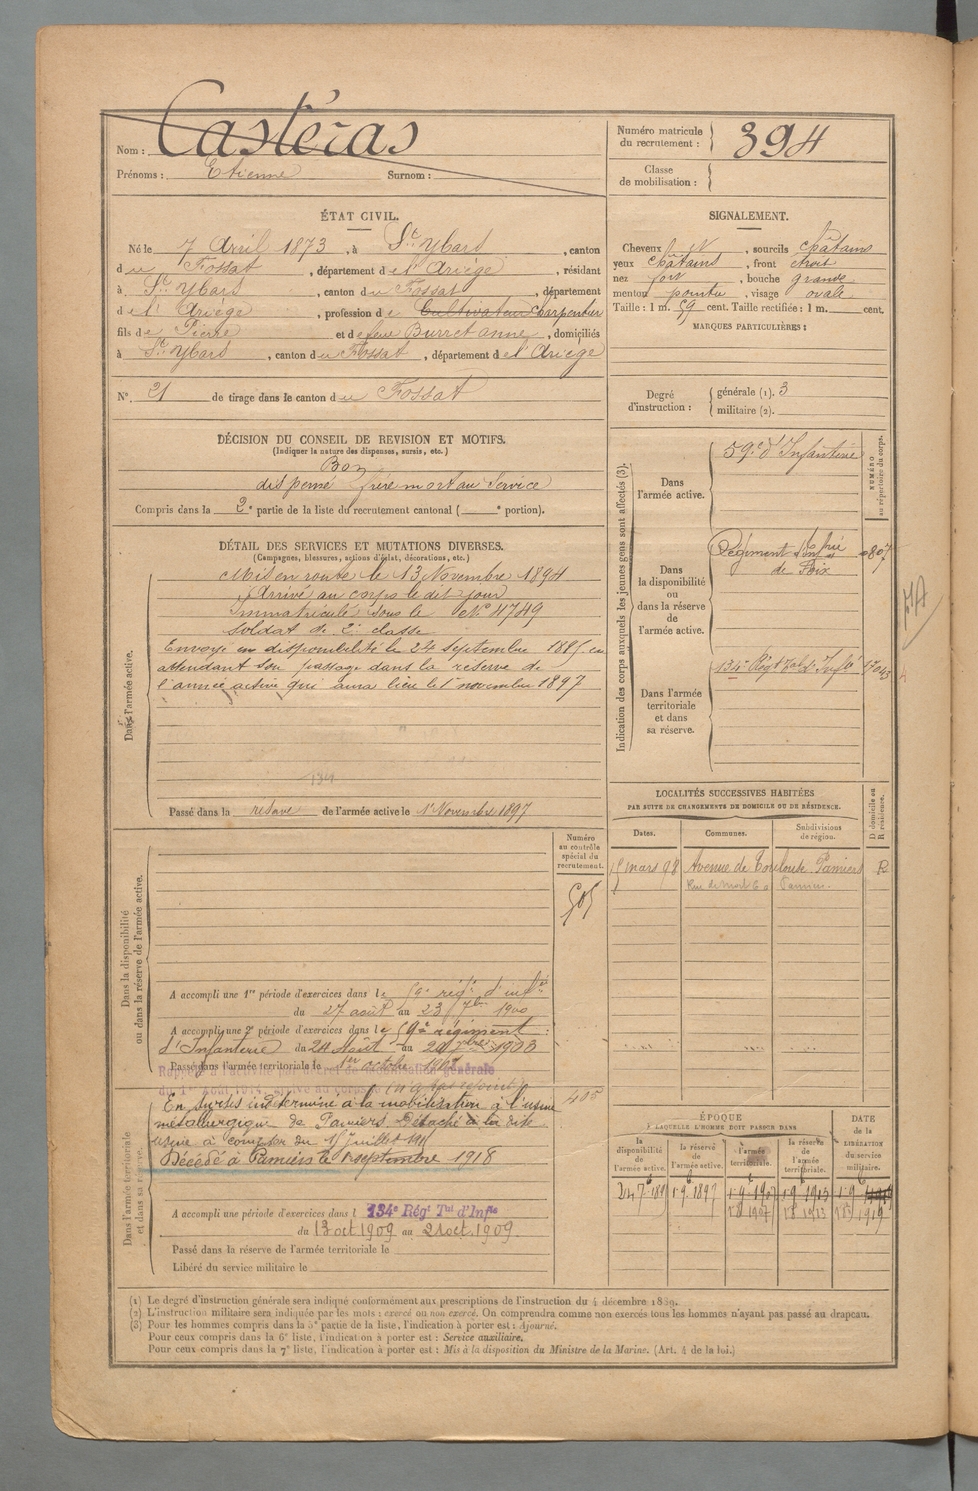 Nom : Castéras
Prénoms : Etienne Surnom :
Numéro matricule du recrutement : 394
Classe de mobilisation :
ÉTAT CIVIL.
Né le 7 Avril 1873, à St Ybars, canton
du Fossat, département de l'Ariège, résidant
à St Ybars, canton du Fossat, département
de l'Ariège, profession de Cultivateur Charpentier
fils de Pierre et de feue Burret Anne, domiciliés
à St Ybars, canton du Fossat, département de l'Ariège
N° 21 de tirage dans le canton du Fossat
SIGNALEMENT.
Cheveux N, sourcils châtains
yeux châtains, front étroit
nez fort, bouche grande
menton pointu, visage ovale
Taille : 1 m. 59 cent. Taille rectifiée : 1 m. cent.
MARQUES PARTICULIÈRES :
Degré d'instruction : générale (1). 3
militaire (2).
DÉCISION DU CONSEIL DE REVISION ET MOTIFS.
(Indiquer la nature des dispenses, sursis, etc.)
Bon
dispensé frère mort au Service
Compris dans la 2e partie de la liste du recrutement cantonal ( e portion).
DÉTAIL DES SERVICES ET MUTATIONS DIVERSES.
(Campagnes, blessures, actions d'éclat, décorations, etc.)
Dans l'armée active.
Mis en route le 13 Novembre 1894
Arrivé au corps le dit jour
Immatriculé sous le N° 4749
Soldat de 2e classe
Envoyé en disponibilité le 24 septembre 1895 en
attendant son passage dans la réserve de
l'armée active qui aura lieu le 1er novembre 1897
134
Passé dans la réserve de l'armée active le 1er Novembre 1897
Indication des corps auxquels les jeunes gens sont affectés (3).
NUMÉRO au répertoire du corps.
Dans l'armée active.
59e d'Infanterie
Dans la disponibilité ou dans la réserve de l'armée active.
Régiment d'Infrie 0807
de Foix
Dans l'armée territoriale et dans sa réserve.
134e Régt Tal d'Infie
LOCALITÉS SUCCESSIVES HABITÉES
PAR SUITE DE CHANGEMENTS DE DOMICILE OU DE RÉSIDENCE.
D domicile ou R résidence.
Dates. Communes. Subdivisions de région.
15 mars 98 Avenue de Toulouse Pamiers R
Pamiers
Numéro au contrôle spécial du recrutement.
505
Dans la disponibilité ou dans la réserve de l'armée active.
A accompli une 1re période d'exercices dans le 59e régt d'infie
du 27 août au 23 7bre 1900
A accompli une 2e période d'exercices dans le 59e régiment
d'Infanterie du 24 Août au 20 7bre 1903
Passé dans l'armée territoriale le 1er octobre 1907
Dans l'armée territoriale et dans sa réserve.
En sursis indéterminé à la mobilisation à l'usine
métallurgique de Pamiers Détaché à la dite
usine à compter du 15 juillet
Décédé à Pamiers le 1 septembre 1918
405
A accompli une période d'exercices dans l 134e Régt Tal d'Infie
du 13 oct 1909 au 21 oct. 1909.
Passé dans la réserve de l'armée territoriale le
Libéré du service militaire le
ÉPOQUE
A LAQUELLE L'HOMME DOIT PASSER DANS
la disponibilité de l'armée active. la réserve de l'armée active. l'armée territoriale. la réserve de l'armée territoriale.
DATE de la LIBÉRATION du service militaire.
1.9.1897 1.9.1907 1.9.1913 1.9.
1907 1913 1919
(1) Le degré d'instruction générale sera indiqué conformément aux prescriptions de l'instruction du 4 décembre 1889.
(2) L'instruction militaire sera indiquée par les mots : exercé ou non exercé. On comprendra comme non exercés tous les hommes n'ayant pas passé au drapeau.
(3) Pour les hommes compris dans la 5e partie de la liste, l'indication à porter est : Ajourné.
Pour ceux compris dans la 6e liste, l'indication à porter est : Service auxiliaire.
Pour ceux compris dans la 7e liste, l'indication à porter est : Mis à la disposition du Ministre de la Marine. (Art. 4 de la loi.)